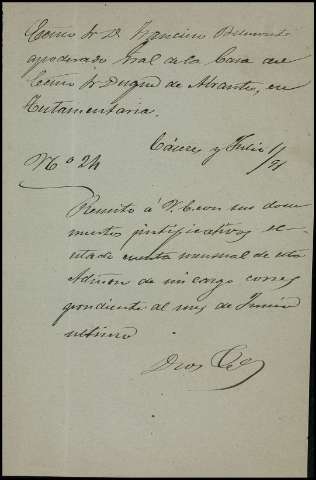 Exmo Sr D. Francisco Belmonte
apoderado Gral de la Casa del
Exmo Sr Duque de Abrantes, en
Testamentaria.
Cáceres y Julio 1/91
No 24
Remito á V. E con sus docu
mentos justificativos el es-
tado cuenta mensual de esta
Admon de mi cargo corres
pondiente al mes de Junio
ultimo
Dios &a